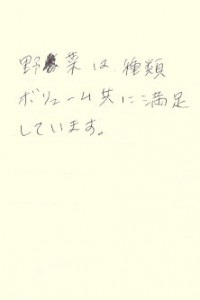 野菜は、種類
ボリューム共に満足
しています。